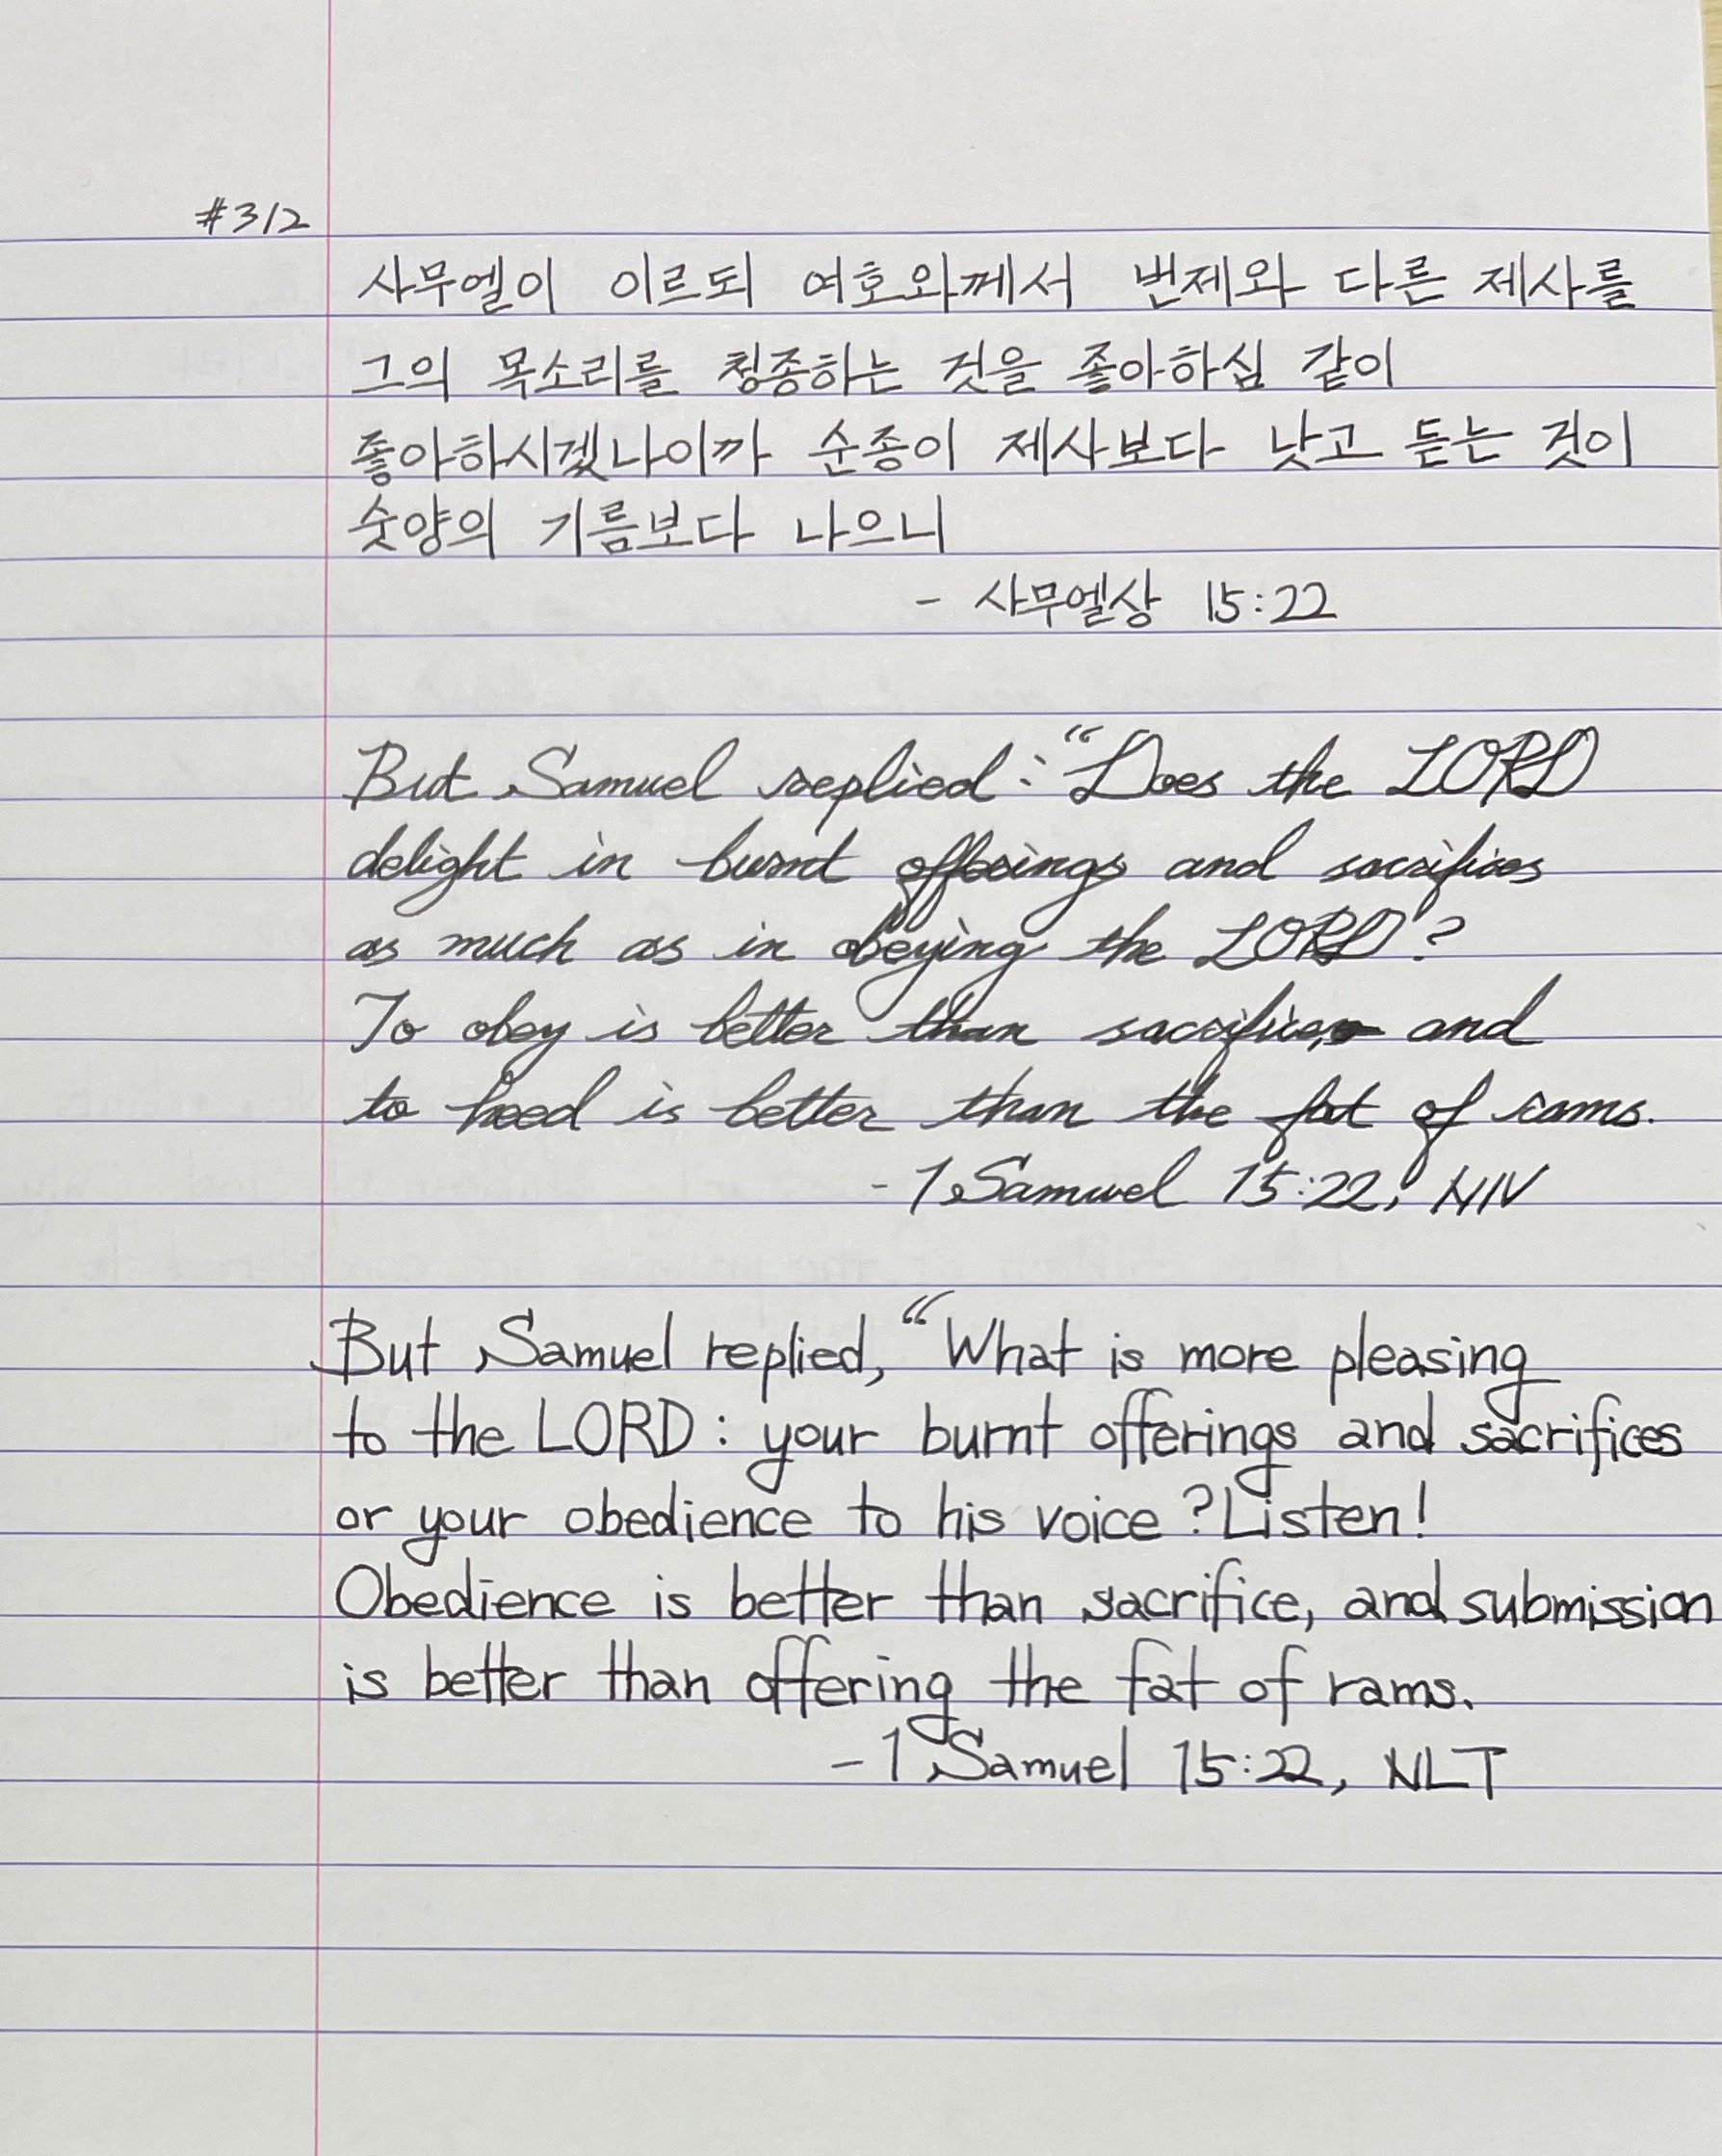 #312
사무엘이 이르되 여호와께서 번제와 다른 제사를
그의 목소리를 청종하는 것을 좋아하심 같이
좋아하시겠나이까 순종이 제사보다 낫고 듣는 것이
숫양의 기름보다 나으니
- 사무엘상 15:22
But Samuel replied: “Does the LORD
delight in burnt offerings and sacrifices
as much as in obeying the LORD?
To obey is better than sacrifice, and
to heed is better than the fat of rams.
- 1 Samuel 15:22, NIV
But Samuel replied, “What is more pleasing
to the LORD: your burnt offerings and sacrifices
or your obedience to his voice? Listen!
Obedience is better than sacrifice, and submission
is better than offering the fat of rams.
- 1 Samuel 15:22, NLT